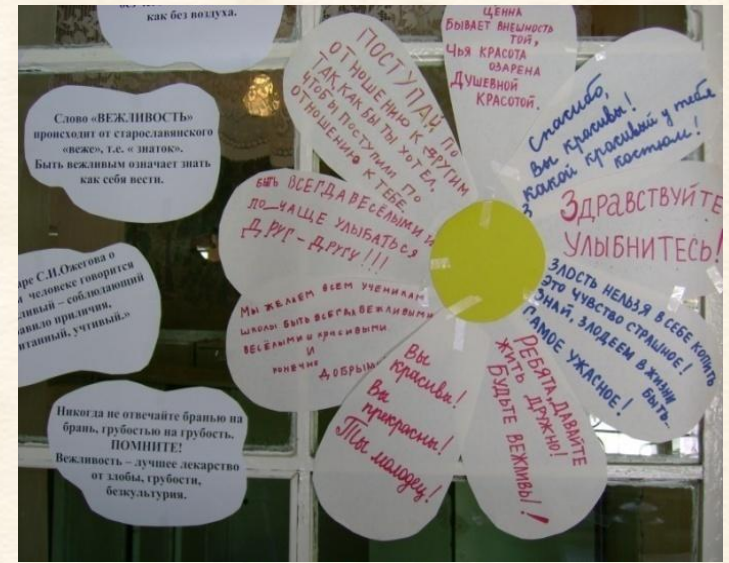 как без воздуха.
Слово «ВЕЖЛИВОСТЬ»
происходит от старославянского
«веже», т.е. « знаток».
Быть вежливым означает знать
как себя вести.
ре С.И.Ожегова о
человеке говорится
ливый – соблюдающий
авило приличия,
итанный, учтивый.»
Никогда не отвечайте бранью на
брань, грубостью на грубость.
ПОМНИТЕ!
Вежливость – лучшее лекарство
от злобы, грубости,
безкультурия.
ЦЕННА
БЫВАЕТ ВНЕШНОСТЬ
ТОЙ,
ЧЬЯ КРАСОТА
ОЗАРЕНА
ДУШЕВНОЙ
КРАСОТОЙ.
Спасибо,
вы красивы!
какой красивый у тебя
костюм!
ЗДРАВСТВУЙТЕ
УЛЫБНИТЕСЬ!
ЗЛОСТЬ НЕЛЬЗЯ В СЕБЕ КОПИТЬ
ЭТО ЧУВСТВО СТРАШНОЕ!
ЗНАЙ, ЗЛОДЕЕМ В ЖИЗНИ БЫТЬ-
САМОЕ УЖАСНОЕ!
РЕБЯТА, ДАВАЙТЕ
ЖИТЬ ДРУЖНО!
БУДЬТЕ ВЕЖЛИВЫ!!
Вы
красивы!
Вы
прекрасны!
Ты молодец!
МЫ ЖЕЛАЕМ ВСЕМ УЧЕНИКАМ
ШКОЛЫ БЫТЬ ВСЕГДА ВЕЖЛИВЫМИ
ВЕСЁЛЫМИ И КРАСИВЫМИ
И
КОНЕЧНО ДОБРЫМИ
БЫТЬ ВСЕГДА ВЕСЁЛЫМИ И
ПО_ЧАЩЕ УЛЫБАТЬСЯ
ДРУГ-ДРУГУ!!!
ПОСТУПАЙ ПО
ОТНОШЕНИЮ К ДРУГИМ
ТАК, КАК БЫ ТЫ ХОТЕЛ,
ЧТОБЫ ПОСТУПИЛИ ПО
ОТНОШЕНИЮ К ТЕБЕ